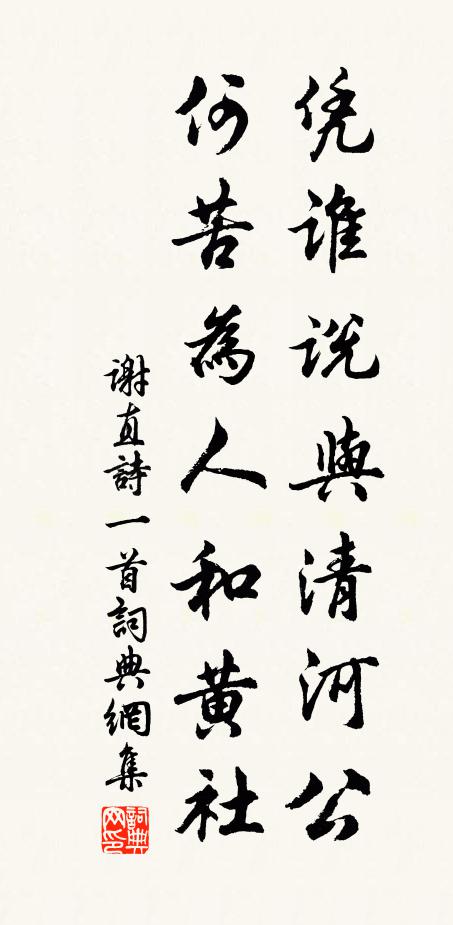 凭誰説與清河公
何苦為人和黄社
謝直詩一首詞典網集
詞典网印